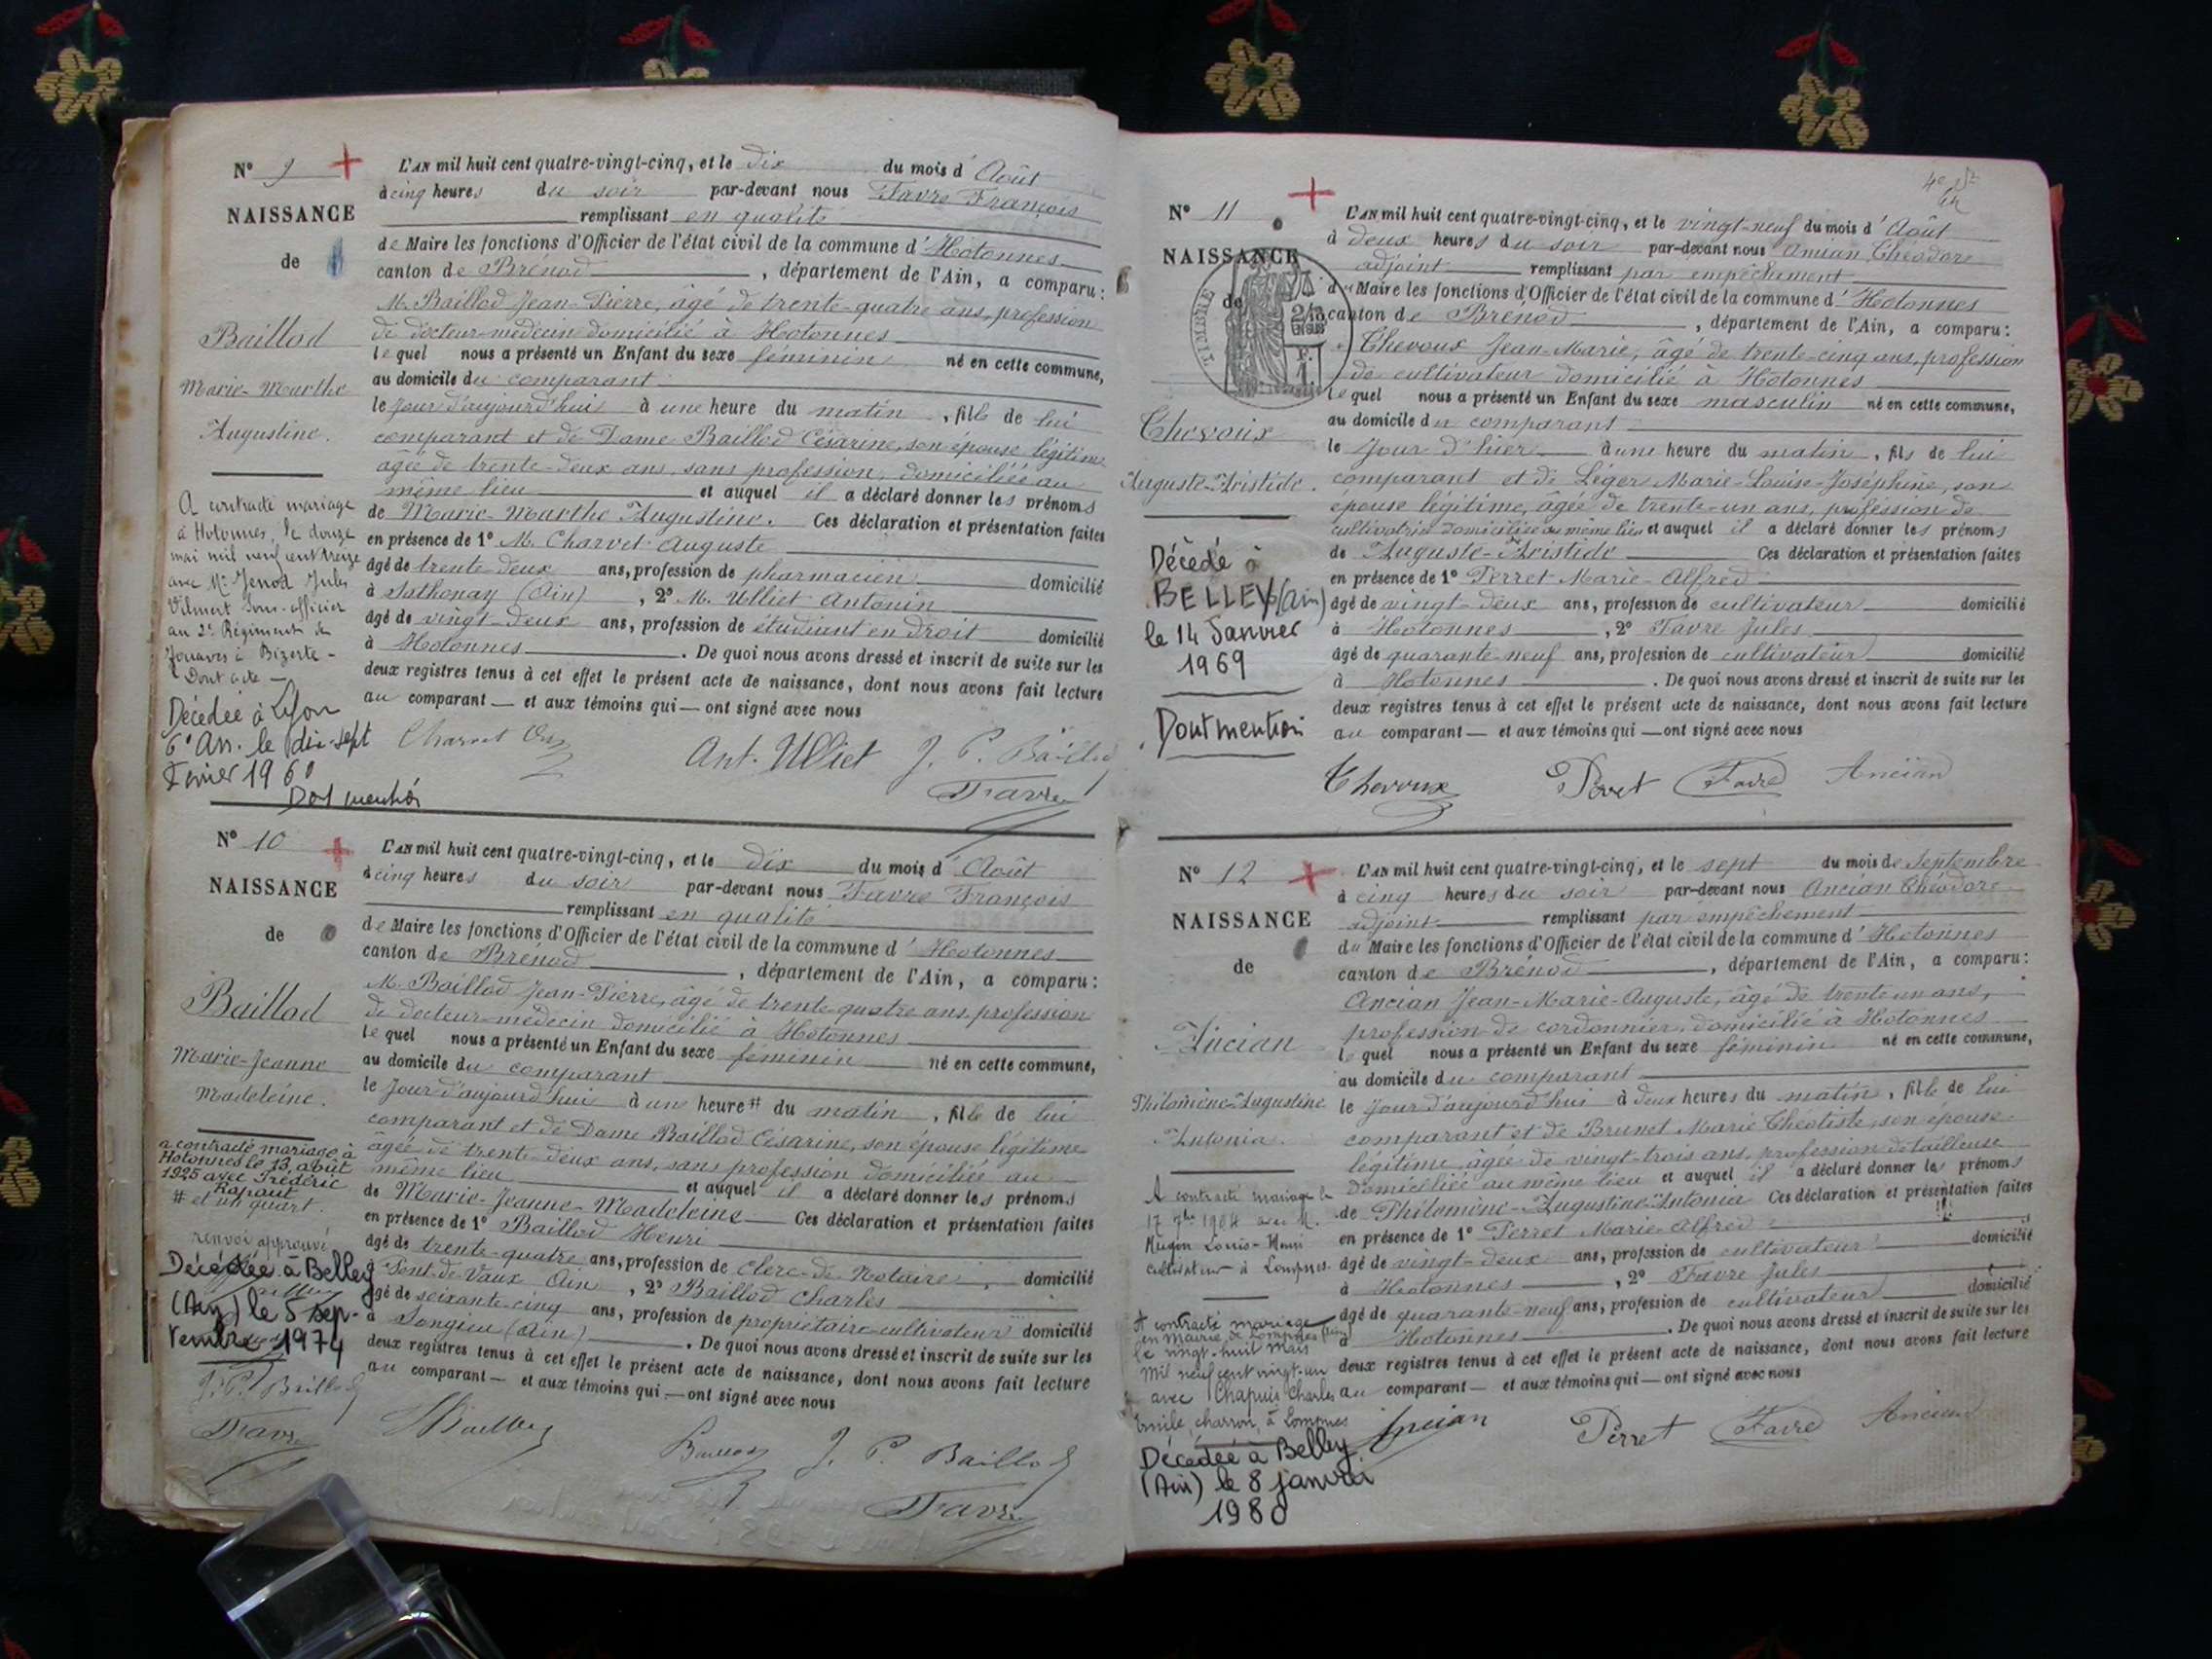 N° 9 +
NAISSANCE
de
Baillod
Marie-Marthe
Augustine.
A contracté mariage
à Hotonnes, le douze
mai mil neuf cent treize
avec Mr Jenod Jules
Vilmert Sous-officier
au 2e Régiment de
Zouaves à Bizerte -
Dont acte —
Décédée à Lyon
6e Arr. le dix-sept
Février 1960
Dont mention
L'AN mil huit cent quatre-vingt-cinq, et le dix du mois d'Août
à cinq heures du soir par-devant nous Favre François
remplissant en qualité
de Maire les fonctions d'Officier de l'état civil de la commune d'Hotonnes
canton de Brénod, département de l'Ain, a comparu:
M. Baillod Jean-Pierre, âgé de trente-quatre ans, profession
de docteur-médecin domicilié à Hotonnes
lequel nous a présenté un Enfant du sexe féminin né en cette commune,
au domicile du comparant
le jour d'aujourd'hui à une heure du matin, fille de lui
comparant et de Dame Baillod Césarine, son épouse légitime
âgée de trente-deux ans, sans profession, domiciliée au
même lieu et auquel il a déclaré donner les prénoms
de Marie-Marthe Augustine. Ces déclaration et présentation faites
en présence de 1° M. Charvet Auguste
âgé de trente-deux ans, profession de pharmacien domicilié
à Sathonay (Ain), 2° M. Ulliet Antonin
âgé de vingt-deux ans, profession de étudiant en droit domicilié
à Hotonnes. De quoi nous avons dressé et inscrit de suite sur les
deux registres tenus à cet effet le présent acte de naissance, dont nous avons fait lecture
au comparant — et aux témoins qui — ont signé avec nous
Charvet Ant. Ulliet J. P. Baillod
Favre
N° 10 +
NAISSANCE
de
Baillod
Marie-Jeanne
Madeleine.
a contracté mariage à
Hotonnes le 13 août
1925 avec Frédéric
Rapaut
# et un quart.
renvoi approuvé
Décédée à Belley
(Ain) le 5 sep-
tembre 1974
J. P. Baillod
Favre
L'AN mil huit cent quatre-vingt-cinq, et le dix du mois d'Août
à cinq heures du soir par-devant nous Favre François
remplissant en qualité
de Maire les fonctions d'Officier de l'état civil de la commune d'Hotonnes
canton de Brénod, département de l'Ain, a comparu:
M. Baillod Jean-Pierre, âgé de trente-quatre ans, profession
de docteur-médecin domicilié à Hotonnes
lequel nous a présenté un Enfant du sexe féminin né en cette commune,
au domicile du comparant
le jour d'aujourd'hui à une heure # du matin, fille de lui
comparant et de Dame Baillod Césarine, son épouse légitime
âgée de trente-deux ans, sans profession domiciliée au
même lieu et auquel il a déclaré donner les prénoms
de Marie-Jeanne-Madeleine Ces déclaration et présentation faites
en présence de 1° Baillod Henri
âgé de trente-quatre ans, profession de clerc-de Notaire, domicilié
à Pont-de-Vaux Ain, 2° Baillod Charles
âgé de soixante-cinq ans, profession de propriétaire-cultivateur domicilié
à Songieu (Ain). De quoi nous avons dressé et inscrit de suite sur les
deux registres tenus à cet effet le présent acte de naissance, dont nous avons fait lecture
au comparant — et aux témoins qui — ont signé avec nous
HBaillod Baillod J. P. Baillod
Favre
4e
N° 11 +
NAISSANCE
de
TIMBRE
Chevoux
Auguste-Aristide.
Décédé à
BELLEY (Ain)
le 14 Janvier
1969
Dont mention
L'AN mil huit cent quatre-vingt-cinq, et le vingt-neuf du mois d'Août
à deux heures du soir par-devant nous Ancian Théodore
adjoint remplissant par empêchement
du Maire les fonctions d'Officier de l'état civil de la commune d'Hotonnes
canton de Brénod, département de l'Ain, a comparu:
Chevoux Jean-Marie, âgé de trente-cinq ans, profession
de cultivateur domicilié à Hotonnes
lequel nous a présenté un Enfant du sexe masculin né en cette commune,
au domicile du comparant
le jour d'hier à une heure du matin, fils de lui
comparant et de Léger Marie-Louise-Joséphine, son
épouse légitime, âgée de trente-un ans, profession de
cultivatrice domiciliée au même lieu et auquel il a déclaré donner les prénoms
de Auguste-Aristide Ces déclaration et présentation faites
en présence de 1° Perret Marie-Alfred
âgé de vingt-deux ans, profession de cultivateur domicilié
à Hotonnes, 2° Favre Jules
âgé de quarante-neuf ans, profession de cultivateur domicilié
à Hotonnes. De quoi nous avons dressé et inscrit de suite sur les
deux registres tenus à cet effet le présent acte de naissance, dont nous avons fait lecture
au comparant — et aux témoins qui — ont signé avec nous
Chevoux Perret Favre Ancian
N° 12 +
NAISSANCE
de
Ancian
Philomène-Augustine
Antonia.
A contracté mariage le
17 9bre 1904 avec M.
Hugon Louis-Henri
cultivateur à Lompnes.
A contracté mariage
en Mairie de Lompnes (Ain)
le vingt-huit Mars
mil neuf cent vingt-un
avec Chapuis Charles
Emile, charron, à Lompnes
Décédée à Belley
(Ain) le 8 janvier
1980
L'AN mil huit cent quatre-vingt-cinq, et le sept du mois de Septembre
à cinq heures du soir par-devant nous Ancian Théodore
adjoint remplissant par empêchement
du Maire les fonctions d'Officier de l'état civil de la commune d'Hotonnes
canton de Brénod, département de l'Ain, a comparu:
Ancian Jean-Marie-Auguste, âgé de trente un ans,
profession de cordonnier, domicilié à Hotonnes
lequel nous a présenté un Enfant du sexe féminin né en cette commune,
au domicile du comparant
le jour d'aujourd'hui à deux heures du matin, fille de lui
comparant et de Brunet Marie Théotiste, son épouse
légitime, âgée de vingt-trois ans, profession de tailleuse
domiciliée au même lieu et auquel il a déclaré donner les prénoms
de Philomène-Augustine-Antonia Ces déclaration et présentation faites
en présence de 1° Perret Marie-Alfred
âgé de vingt-deux ans, profession de cultivateur domicilié
à Hotonnes, 2° Favre Jules
âgé de quarante-neuf ans, profession de cultivateur domicilié
à Hotonnes. De quoi nous avons dressé et inscrit de suite sur les
deux registres tenus à cet effet le présent acte de naissance, dont nous avons fait lecture
au comparant — et aux témoins qui — ont signé avec nous
Ancian Perret Favre Ancian